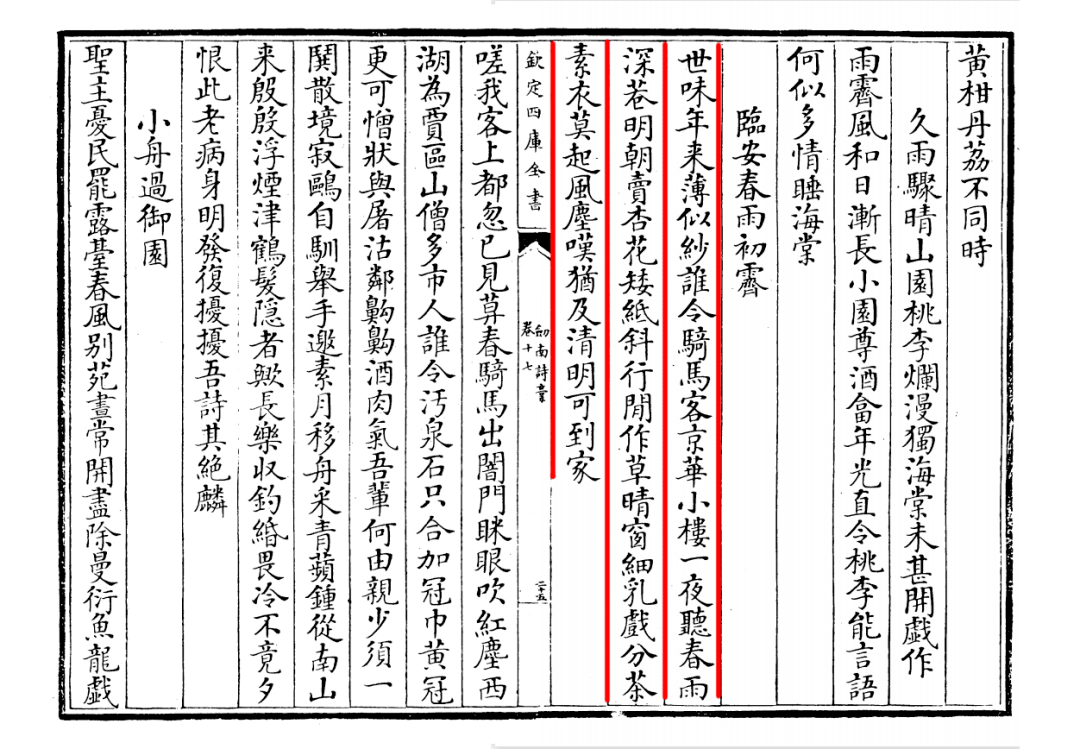 黄柑丹荔不同時
久雨驟晴山園桃李爛漫獨海棠未甚開戯作
雨霽風和日漸長小園尊酒畣年光直令桃李能言語
何似多情睡海棠
臨安春雨初霽
世味年来薄似紗誰令騎馬客京華小樓一夜聽春雨
深巷明朝賣杏花矮紙斜行閒作草晴窗細乳戲分茶
素衣莫起風塵嘆猶及清明可到家
欽定四庫全書
劍南詩藁
卷十七
二十五
嗟我客上都忽已見莫春騎馬出闇門眯眼吹紅塵西
湖為賈區山僧多市人誰令汚泉石只合加冠巾黄冠
更可憎狀與屠沽鄰齁齁酒肉氣吾輩何由親少須一
鬨散境寂鷗自馴舉手邀素月移舟采青蘋鍾從南山
来殷殷浮煙津鶴髮隠者歟長樂収釣緡畏冷不竟夕
恨此老病身明發復擾擾吾詩其絶麟
小舟過御園
聖主憂民罷露臺春風别苑晝常開盡除曼衍魚龍戯